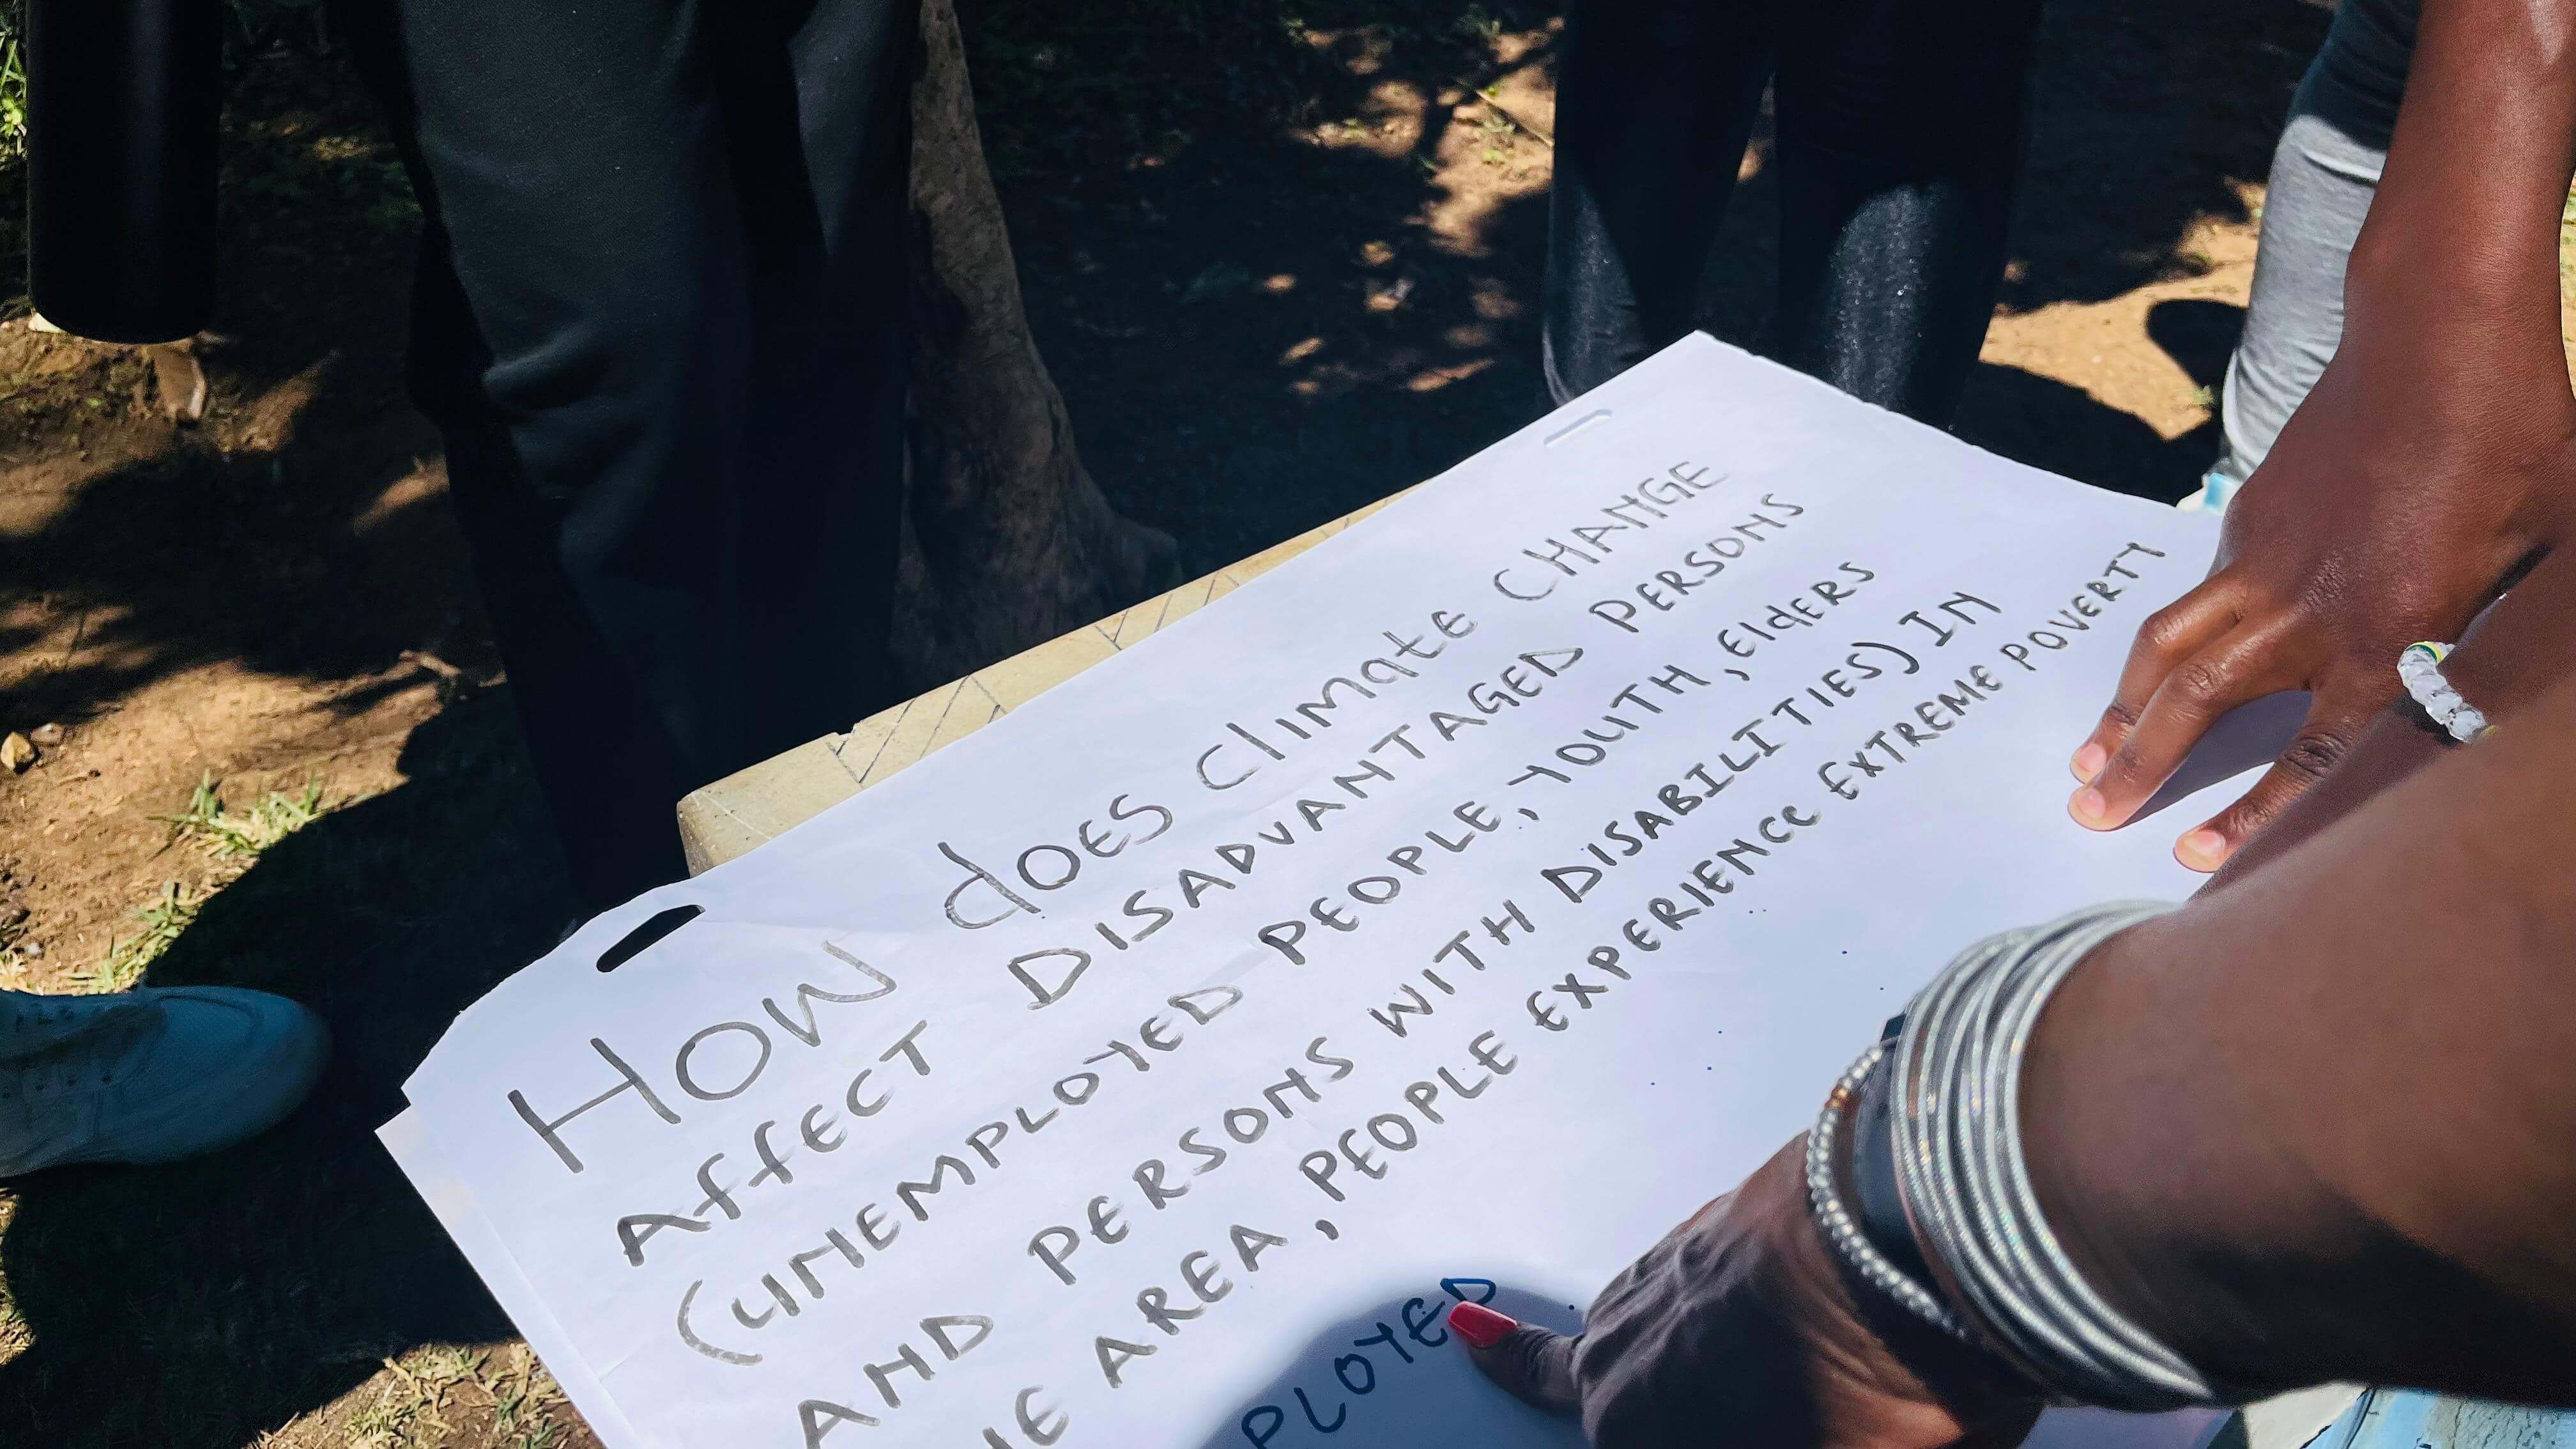 HOW dOES ClIMatE CHANGE
AffECT DISADVANTAGED PERSONS
(UNEMPLOYED PEOPLE, YOUTH, EldERS
AND PERSONS WITH DISABILITIES) IN
AREA, PEOPLE EXPERIENCE EXTREME POVERTY
PLOYED